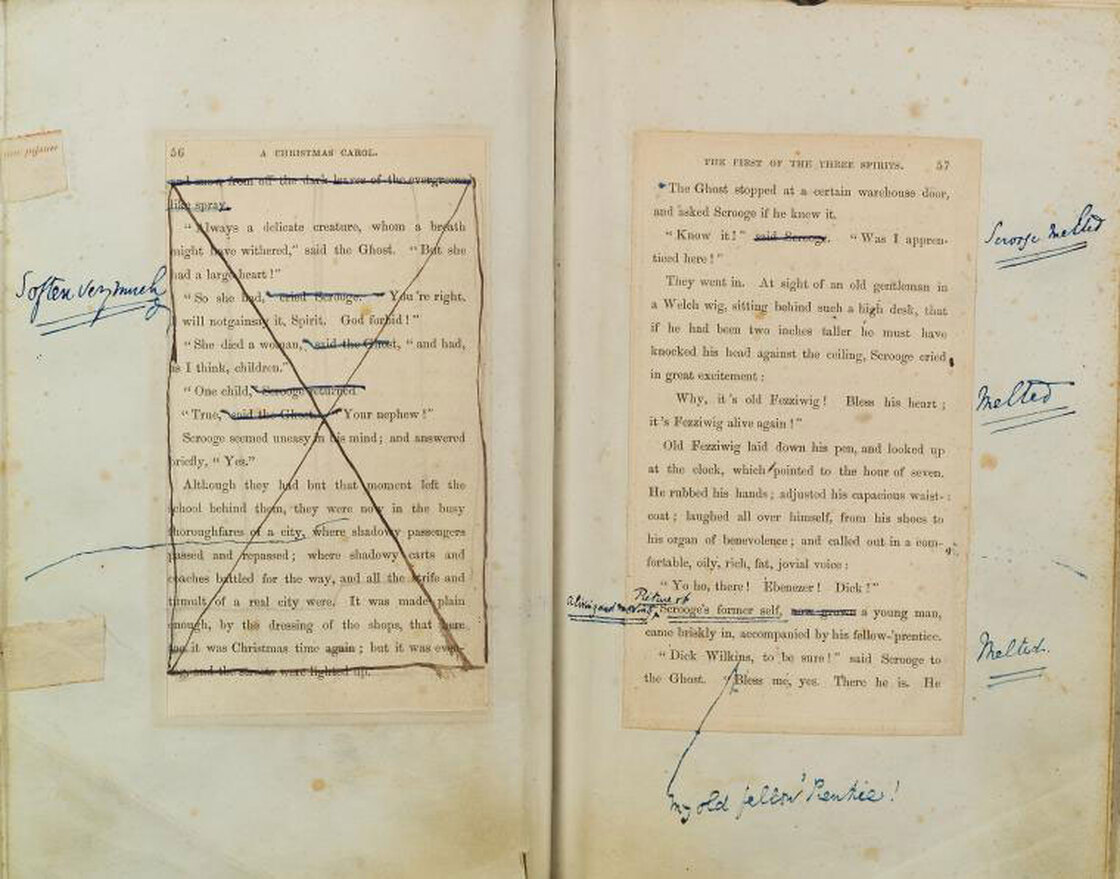 56 A CHRISTMAS CAROL.
and snow from off the dark leaves of the evergreens
like spray.
"Always a delicate creature, whom a breath
might have withered," said the Ghost. "But she
had a large heart!"
"So she had," cried Scrooge. "You're right.
will notgainsay it, Spirit. God forbid!"
"She died a woman," said the Ghost, "and had,
as I think, children."
"One child," Scrooge returned.
"True," said the Ghost. "Your nephew!"
Scrooge seemed uneasy in his mind; and answered
briefly, "Yes."
Although they had but that moment left the
school behind them, they were now in the busy
thoroughfares of a city, where shadowy passengers
passed and repassed; where shadowy carts and
coaches battled for the way, and all the strife and
tumult of a real city were. It was made plain
enough, by the dressing of the shops, that here
too it was Christmas time again; but it was even-
ing, and the streets were lighted up.
Soften very much
THE FIRST OF THE THREE SPIRITS. 57
The Ghost stopped at a certain warehouse door,
and asked Scrooge if he knew it.
"Know it!" said Scrooge. "Was I appren-
ticed here!"
They went in. At sight of an old gentleman in
a Welch wig, sitting behind such a high desk, that
if he had been two inches taller he must have
knocked his head against the ceiling, Scrooge cried
in great excitement:
Why, it's old Fezziwig! Bless his heart;
it's Fezziwig alive again!"
Old Fezziwig laid down his pen, and looked up
at the clock, which pointed to the hour of seven.
He rubbed his hands; adjusted his capacious waist-
coat; laughed all over himself, from his shoes to
his organ of benevolence; and called out in a com-
fortable, oily, rich, fat, jovial voice:
"Yo ho, there! Ebenezer! Dick!"
A living and moving Picture of
Scrooge's former self, now grown a young man,
came briskly in, accompanied by his fellow-'prentice.
"Dick Wilkins, to be sure!" said Scrooge to
the Ghost. "Bless me, yes. There he is. He
Scrooge melted
Melted
Melted.
My old fellow 'Prentice!